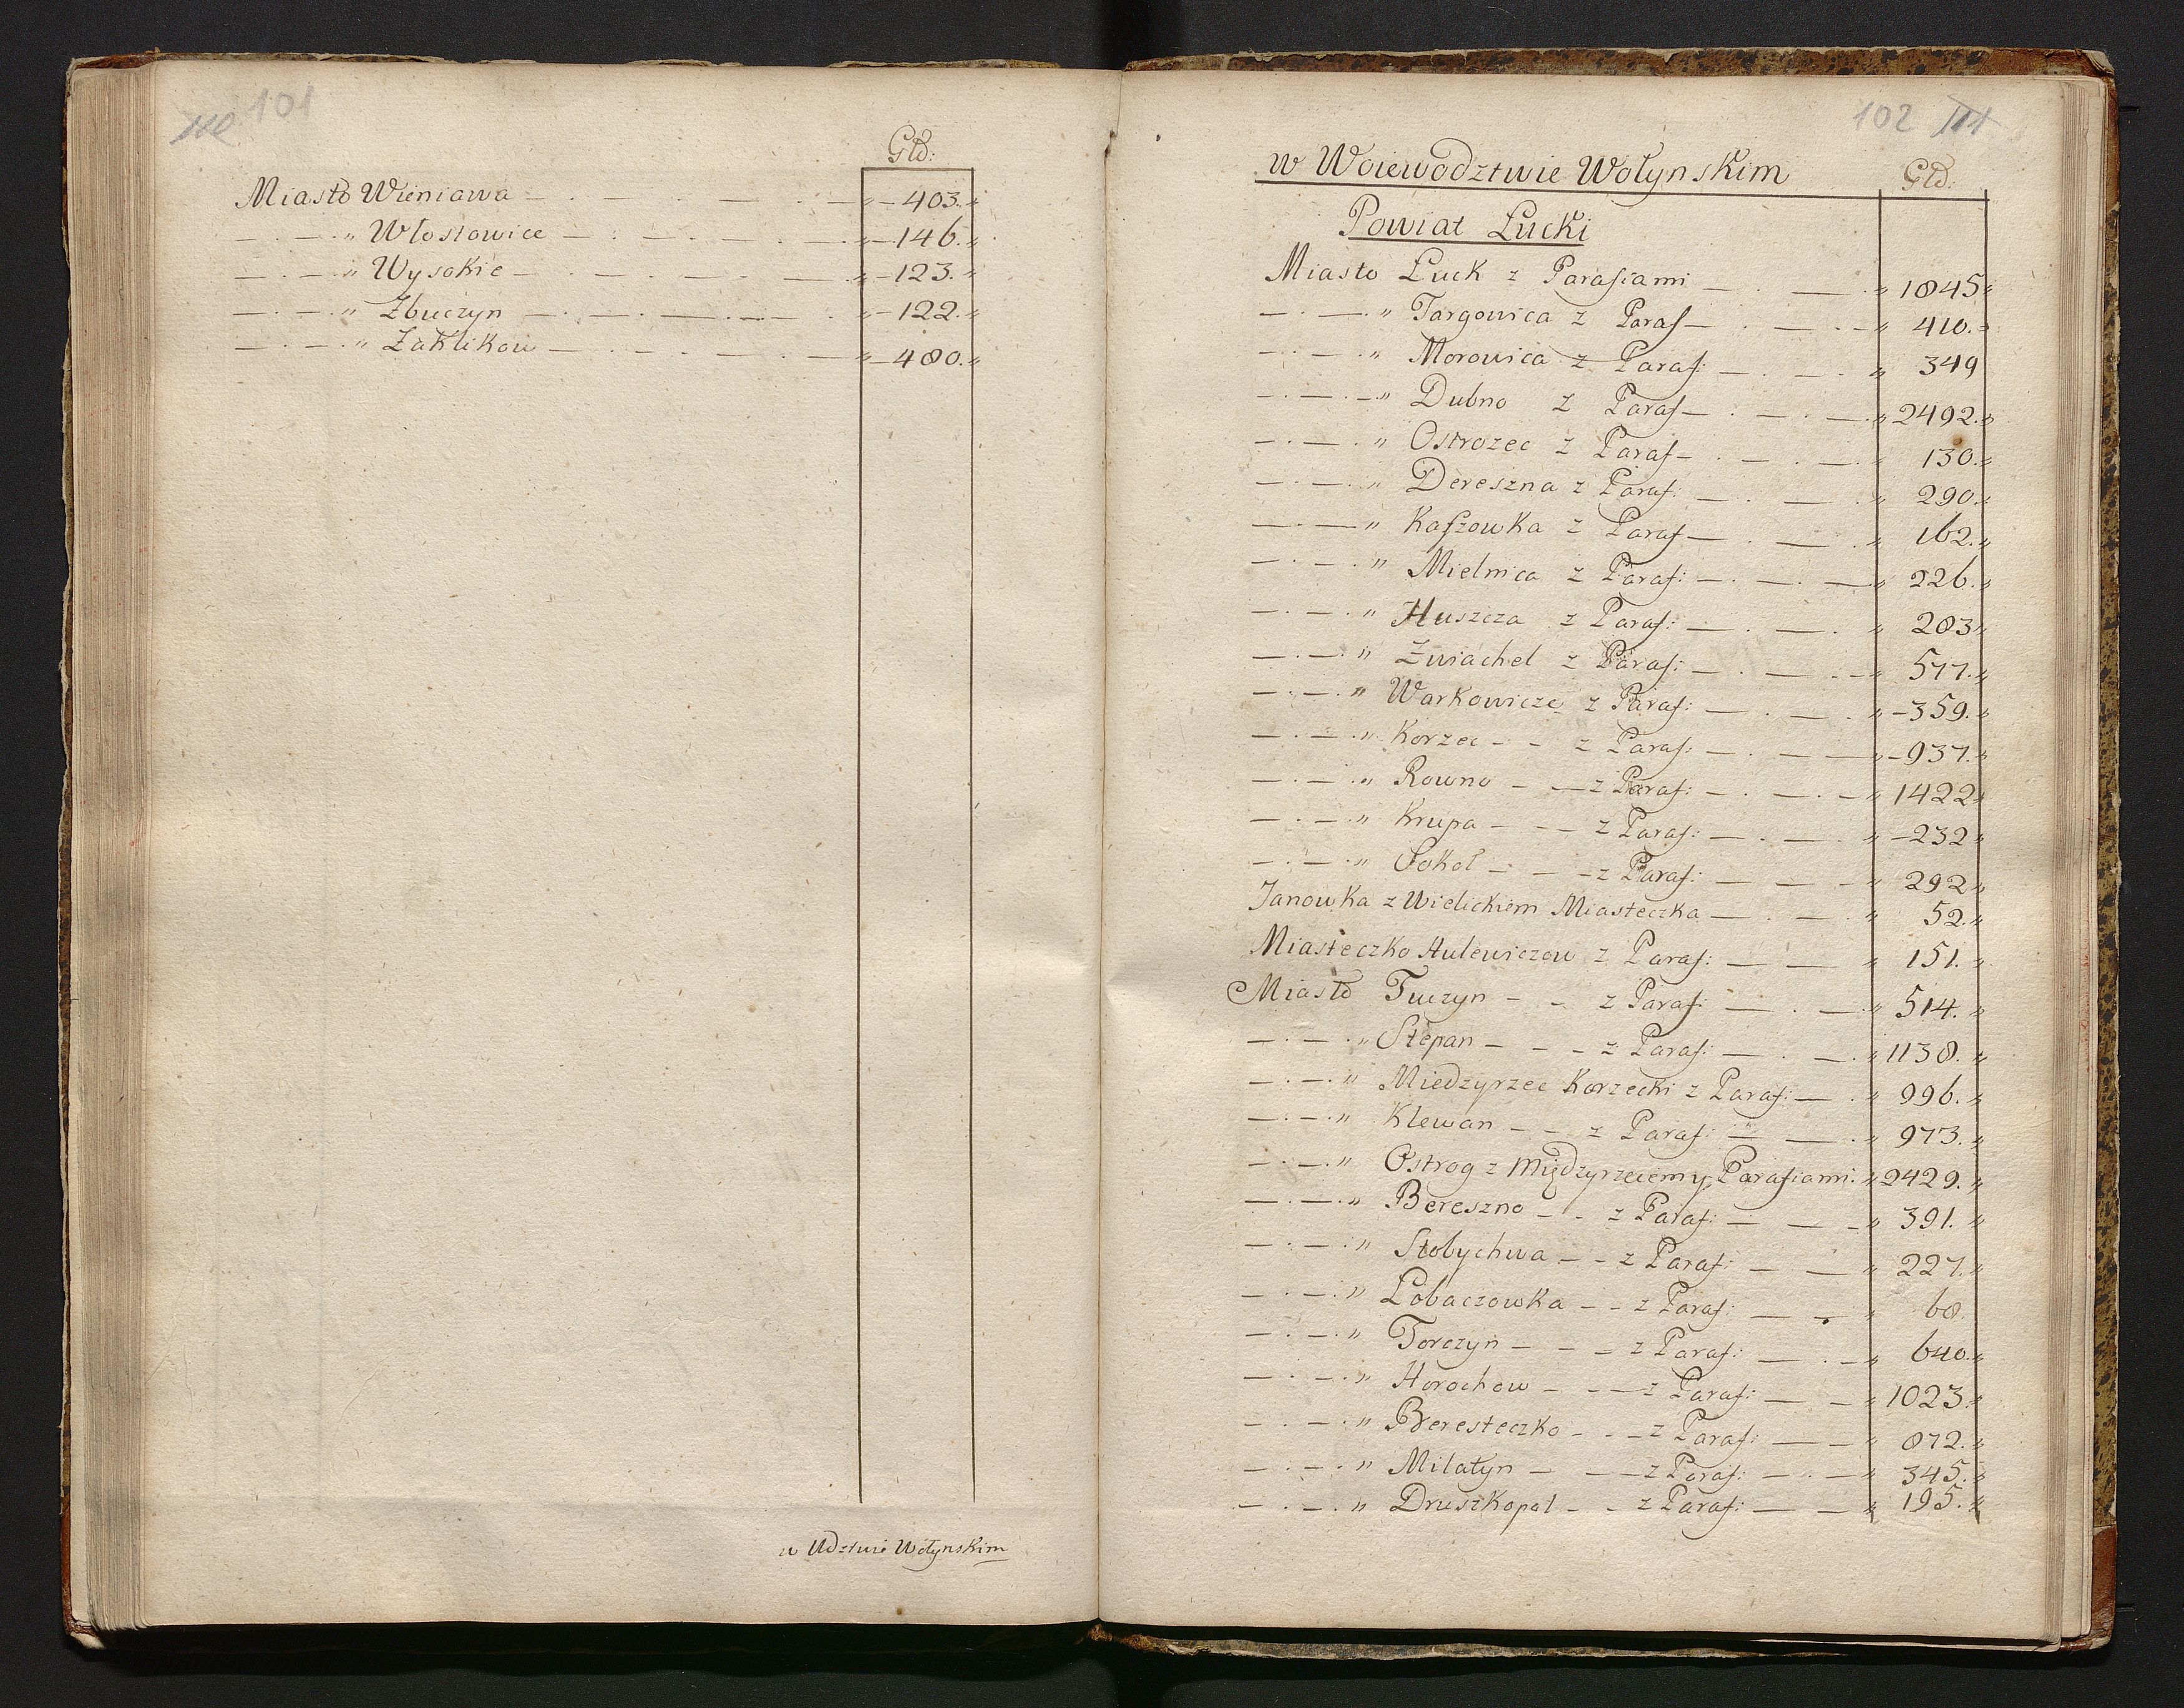 101
Głd:
Miasto Wieniawa — 403.
— . — . — " Włostowice — 146.
— . — . — " Wysokie — 123.
— . — . — " Zbuczyn — 122.
— . — . — " Zaklikow — 480.
w Wdztwie Wołynskim
102 111
w Woiewodztwie Wołynskim Głd:
Powiat Łucki
Miasto Łuck z Parafiami — 1845
— . — . " Targowica z Paraf — 410.
— . — . " Morowica z Paraf: — 349
— . — . " Dubno z Paraf — 2492.
— . — . " Ostrozec z Paraf — 130.
— . — . " Dereszna z Paraf: — 290.
— . — . " Kaszowka z Paraf — 162.
— . — . " Mielnica z Paraf: — 226.
— . — . " Huszcza z Paraf: — 283
— . — . " Zwiachel z Paraf: — 577.
— . — . " Warkowicze z Paraf: — 359.
— . — . " Korzec - - z Paraf: — 937.
— . — . " Rowno - — z Paraf: — 1422
— . — . " Krupa - - - z Paraf: — 232
— . — . " Sokol - - - z Paraf: — 292
Janowka z Wielickiem Miasteczka — 52.
Miasteczko Hulewiczow z Paraf: — 151.
Miasto Tuczyn - - z Paraf: — 514.
— . — . " Stepan - - - z Paraf: — 1138.
— . — . " Miedzyrzec Korzecki z Paraf: — 996.
— . — . " Klewan - - z Paraf: — 973.
— . — . " Ostrog z Międzyrzeciemy Parafiami. 2429.
— . — . " Bereszno - - z Paraf: — 391.
— . — . " Stobychwa - - z Paraf: — 227.
— . — . " Łobaczowka - - z Paraf: — 68.
— . — . " Torczyn - - - z Paraf: — 640.
— . — . " Horochow - - — z Paraf: — 1023.
— . — . " Beresteczko - - — z Paraf: — 872.
— . — . " Milatyn - - — z Paraf: — 345.
— . — . " Druszkopol - - z Paraf: — 195.